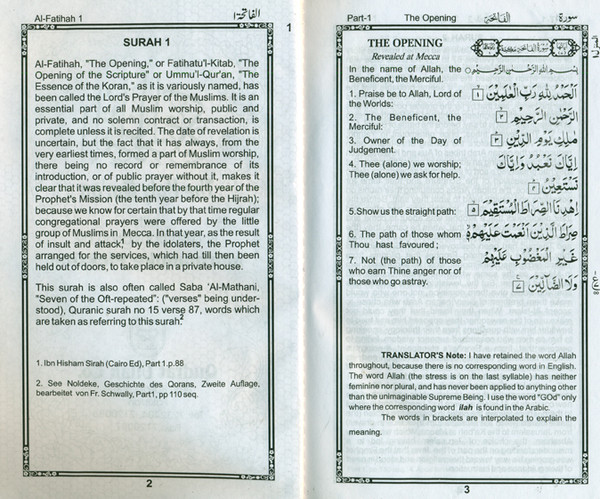 Al-Fatihah 1
الفاتحة ١
1
SURAH 1
Al-Fatihah, "The Opening," or Fatihatu'l-Kitab, "The
Opening of the Scripture" or Ummu'l-Qur'an, "The
Essence of the Koran," as it is variously named, has
been called the Lord's Prayer of the Muslims. It is an
essential part of all Muslim worship, public and
private, and no solemn contract or transaction, is
complete unless it is recited. The date of revelation is
uncertain, but the fact that it has always, from the
very earliest times, formed a part of Muslim worship,
there being no record or remembrance of its
introduction, or of public prayer without it, makes it
clear that it was revealed before the fourth year of the
Prophet's Mission (the tenth year before the Hijrah);
because we know for certain that by that time regular
congregational prayers were offered by the little
group of Muslims in Mecca. In that year, as the result
of insult and attack,1 by the idolaters, the Prophet
arranged for the services, which had till then been
held out of doors, to take place in a private house.
This surah is also often called Saba 'Al-Mathani,
"Seven of the Oft-repeated": ("verses" being under-
stood), Quranic surah no 15 verse 87, words which
are taken as referring to this surah.2
1. Ibn Hisham Sirah (Cairo Ed), Part 1.p.88
2. See Noldeke, Geschichte des Qorans, Zweite Auflage,
bearbeitet von Fr. Schwally, Part1, pp 110 seq.
2
Part-1 The Opening الفاتحة سورة
THE OPENING
Revealed at Mecca
In the name of Allah, the
Beneficent, the Merciful.
بِسْمِ اللهِ الرَّحْمٰنِ الرَّحِيْمِ
1. Praise be to Allah, Lord of
the Worlds:
اَلْحَمْدُ لِلّٰهِ رَبِّ الْعٰلَمِيْنَ ١
2. The Beneficent, the
Merciful:
الرَّحْمٰنِ الرَّحِيْمِ ٢
3. Owner of the Day of
Judgement.
مٰلِكِ يَوْمِ الدِّيْنِ ٣
4. Thee (alone) we worship;
Thee (alone) we ask for help.
اِيَّاكَ نَعْبُدُ وَاِيَّاكَ
نَسْتَعِيْنُ ٤
5.Show us the straight path:
اِهْدِنَا الصِّرَاطَ الْمُسْتَقِيْمَ ٥
6. The path of those whom
Thou hast favoured;
صِرَاطَ الَّذِيْنَ اَنْعَمْتَ عَلَيْهِمْ ٦
7. Not (the path) of those
who earn Thine anger nor of
those who go astray.
غَيْرِ الْمَغْضُوْبِ عَلَيْهِمْ
وَلَا الضَّآلِّيْنَ ٧
TRANSLATOR'S Note: I have retained the word Allah
throughout, because there is no corresponding word in English.
The word Allah (the stress is on the last syllable) has neither
feminine nor plural, and has never been applied to anything other
than the unimaginable Supreme Being. I use the word "GOD" only
where the corresponding word ilah is found in the Arabic.
The words in brackets are interpolated to explain the
meaning.
3